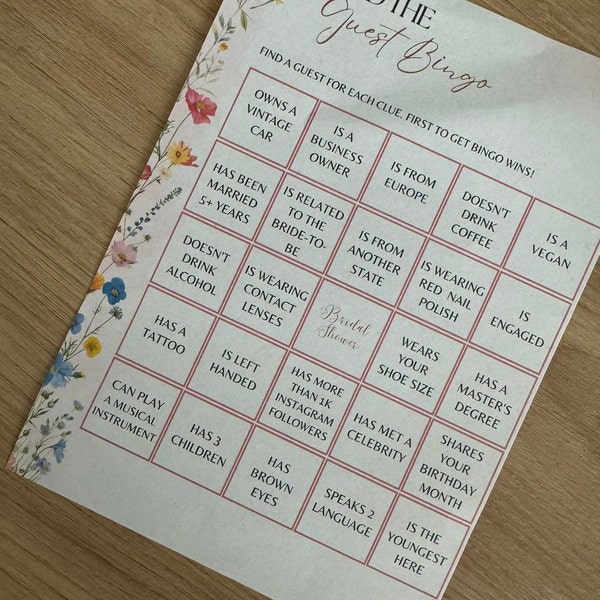 THE
Guest Bingo
FIND A GUEST FOR EACH CLUE. FIRST TO GET BINGO WINS!
OWNS A
VINTAGE
CAR
IS A
BUSINESS
OWNER
IS FROM
EUROPE
DOESN'T
DRINK
COFFEE
IS A
VEGAN
HAS BEEN
MARRIED
5+ YEARS
IS RELATED
TO THE
BRIDE-TO-
BE
IS FROM
ANOTHER
STATE
IS WEARING
RED NAIL
POLISH
IS
ENGAGED
DOESN'T
DRINK
ALCOHOL
IS WEARING
CONTACT
LENSES
Bridal
Shower
WEARS
YOUR
SHOE SIZE
HAS A
MASTER'S
DEGREE
HAS A
TATTOO
IS LEFT
HANDED
HAS MORE
THAN 1K
INSTAGRAM
FOLLOWERS
HAS MET A
CELEBRITY
SHARES
YOUR
BIRTHDAY
MONTH
CAN PLAY
A MUSICAL
INSTRUMENT
HAS 3
CHILDREN
HAS
BROWN
EYES
SPEAKS 2
LANGUAGE
IS THE
YOUNGEST
HERE